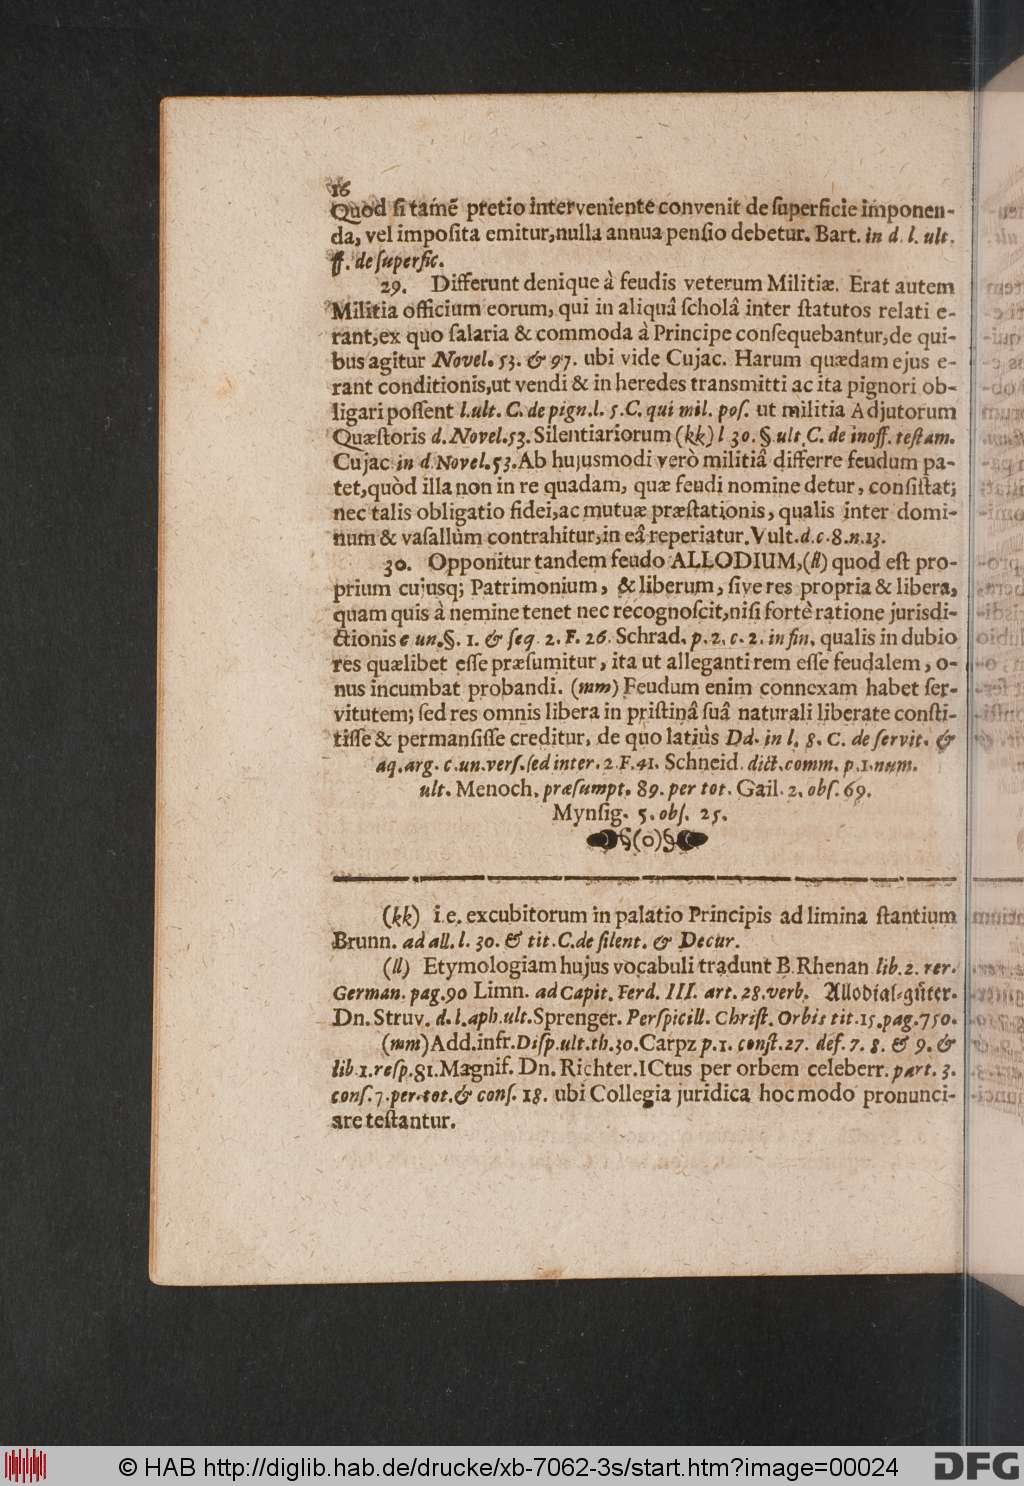 16
Quod ſi tamē pretio interveniente convenit de ſuperficie imponen-
da, vel impoſita emitur, nulla annua penſio debetur. Bart. in d. l. ult.
ff. de ſuperfic.
29. Differunt denique à feudis veterum Militiæ. Erat autem
Militia officium eorum, qui in aliquâ ſcholâ inter ſtatutos relati e-
rant, ex quo ſalaria & commoda à Principe conſequebantur, de qui-
bus agitur Novel. 53. & 97. ubi vide Cujac. Harum quædam ejus e-
rant conditionis, ut vendi & in heredes transmitti ac ita pignori ob-
ligari poſſent l. ult. C. de pign. l. 5. C. qui mil. poſ. ut militia Adjutorum
Quæſtoris d. Novel. 53. Silentiariorum (kk) l 30. §. ult. C. de inoff. teſtam.
Cujac in d. Novel. 53. Ab hujusmodi verò militiâ differre feudum pa-
tet, quòd illa non in re quadam, quæ feudi nomine detur, conſiſtat;
nec talis obligatio fidei, ac mutuæ præſtationis, qualis inter domi-
num & vaſallùm contrahitur, in eâ reperiatur. Vult. d. c. 8. n. 13.
30. Opponitur tandem feudo ALLODIUM, (ll) quod eſt pro-
prium cujusq; Patrimonium, & liberum, ſive res propria & libera,
quam quis à nemine tenet nec recognoſcit, niſi fortè ratione jurisdi-
ctionis c un. §. 1. & ſeq. 2. F. 26. Schrad. p. 2. c. 2. in fin. qualis in dubio
res quælibet eſſe præſumitur, ita ut alleganti rem eſſe feudalem, o-
nus incumbat probandi. (mm) Feudum enim connexam habet ſer-
vitutem; ſed res omnis libera in priſtinâ ſuâ naturali liberate conſti-
tiſſe & permanſiſſe creditur, de quo latiùs Dd. in l. 8. C. de ſervit. &
aq. arg. c. un. verſ. ſed inter. 2. F. 41. Schneid. dict. comm. p. 1. num.
ult. Menoch. præſumpt. 89. per tot. Gail. 2. obſ. 69.
Mynſig. 5. obſ. 25.
§(o)§
(kk) i. e. excubitorum in palatio Principis ad limina ſtantium
Brunn. ad all. l. 30. & tit. C. de ſilent. & Decur.
(ll) Etymologiam hujus vocabuli tradunt B. Rhenan lib. 2. rer.
German. pag. 90 Limn. ad Capit. Ferd. III. art. 28. verb. Allodial-güter.
Dn. Struv. d. l. aph. ult. Sprenger. Perſpicill. Chriſt. Orbis tit. 15. pag. 750.
(mm) Add. infr. Diſp. ult. th. 30. Carpz p. 1. conſt. 27. def. 7. 8. & 9. &
lib. 1. reſp. 81. Magnif. Dn. Richter. ICtus per orbem celeberr. part. 3.
conſ. 7. per tot. & conſ. 18. ubi Collegia juridica hoc modo pronunci-
are teſtantur.
© HAB http://diglib.hab.de/drucke/xb-7062-3s/start.htm?image=00024
DFG